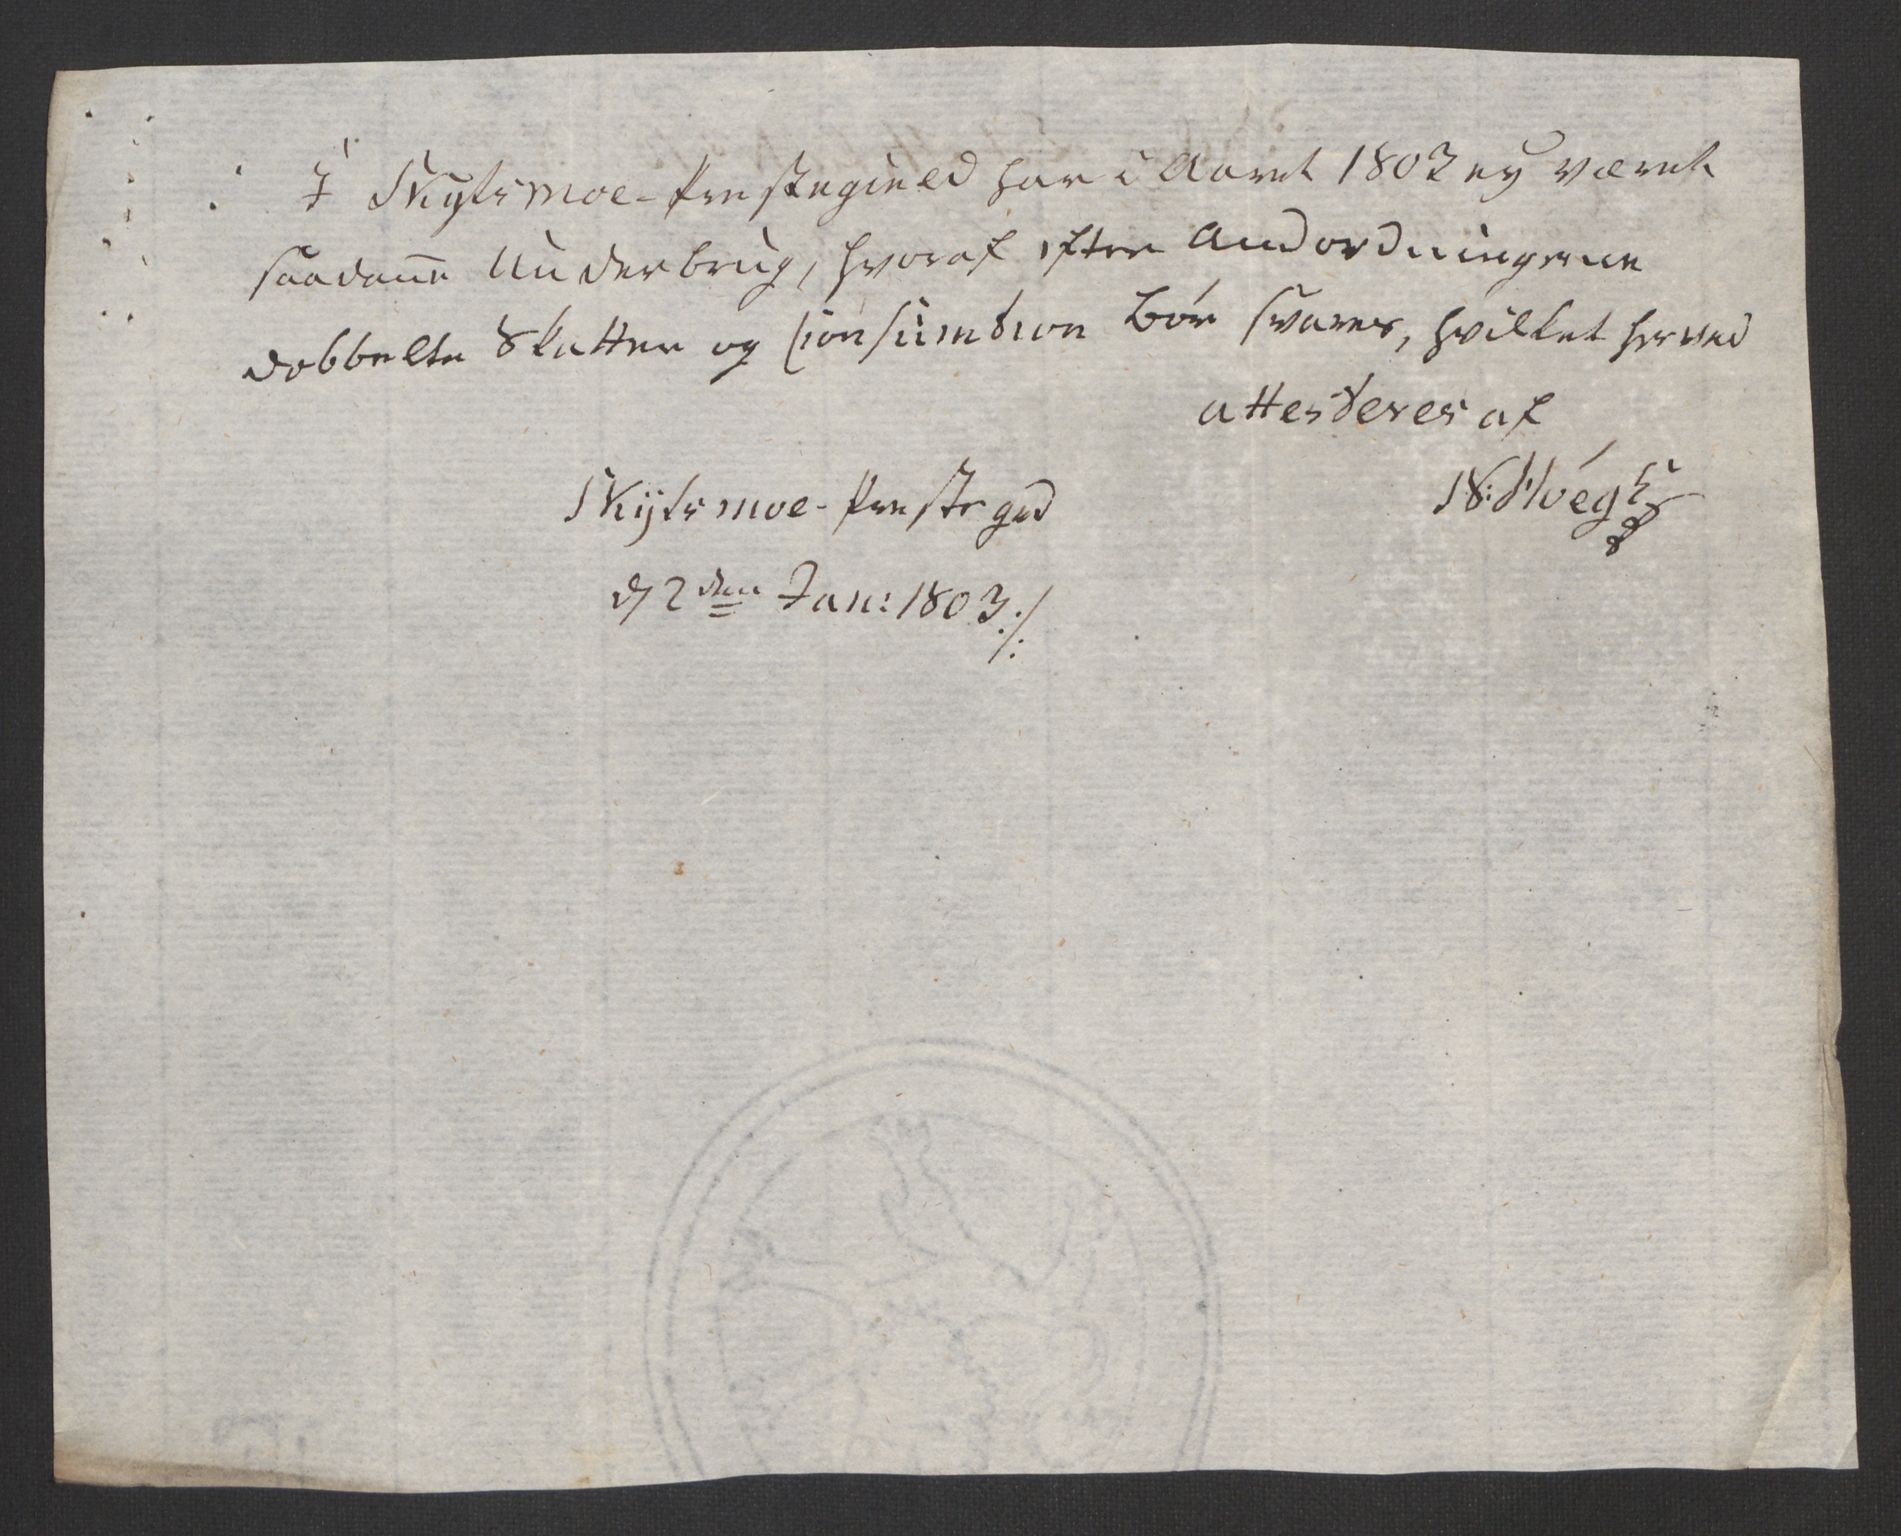 I Skytsmoe-Prestegield har i Aaret 1802 ey været
saadane Underbrug, hvoraf efter Andordningerne
dobbelte Skatter og Consumtion bór svares, hvilket herved
attesteres af
Skytsmoe-Prestegrd
d 2den Jan: 1803 ./.